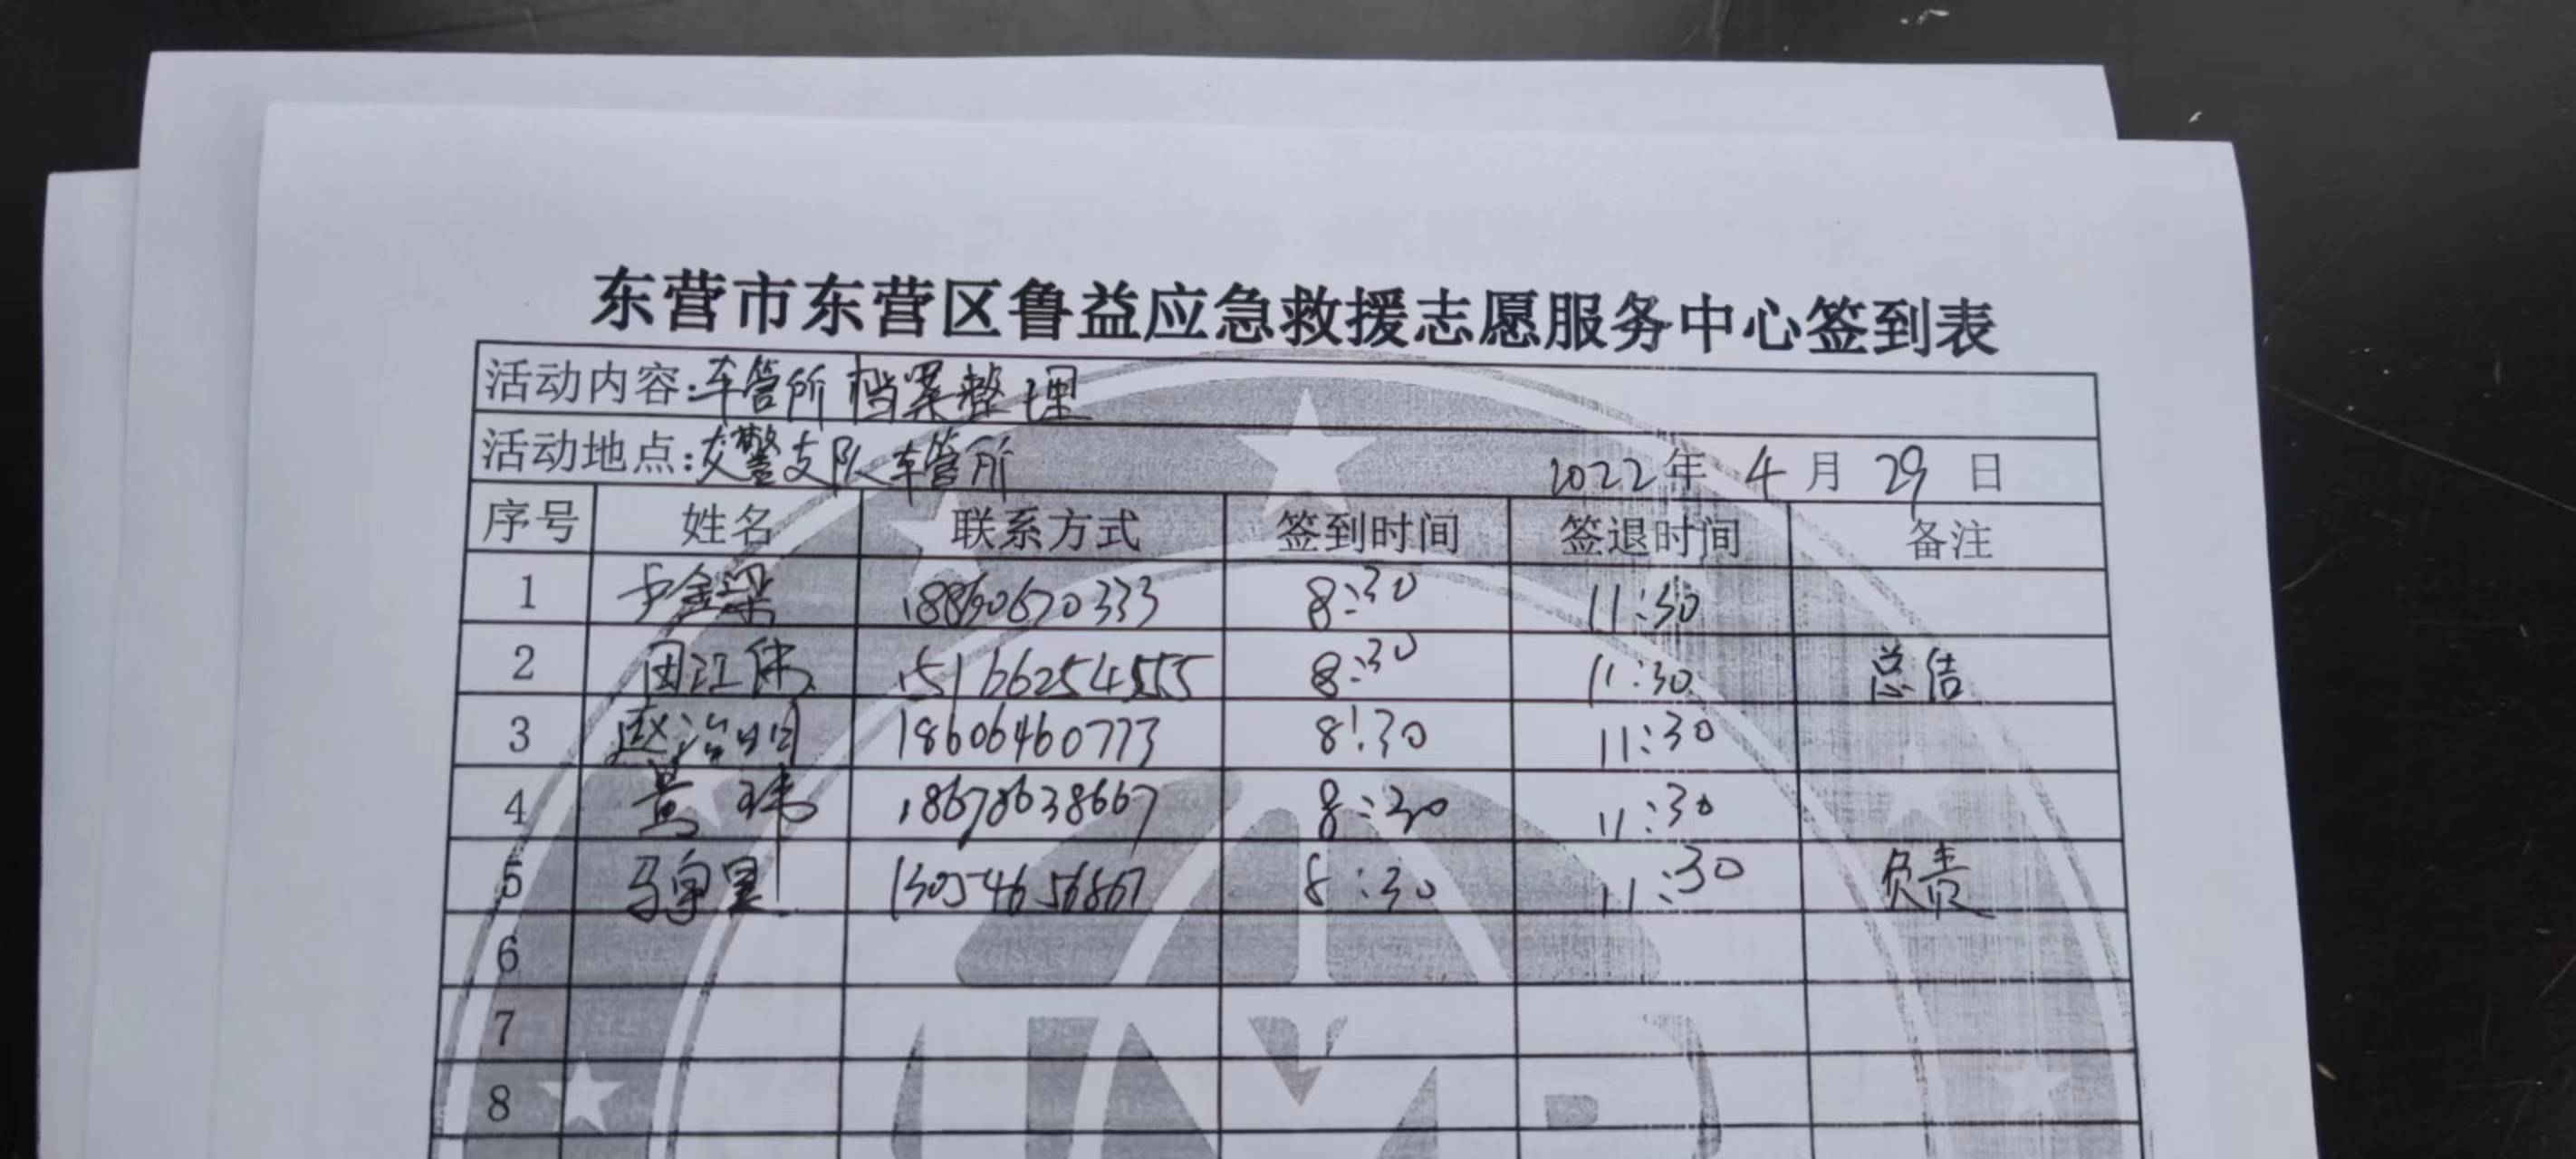 东营市东营区鲁益应急救援志愿服务中心签到表
活动内容:车管所档案整理
活动地点:交警支队车管所 2022年4月29日
序号 姓名 联系方式 签到时间 签退时间 备注
1 卢金梁 18860670333 8:30 11:30
2 田江伟 15166254555 8:30 11:30 总结
3 赵治明 18606460773 8:30 11:30
4 景玮 18678638667 8:30 11:30
5 马 13054656867 8:30 11:30 负责
6
7
8